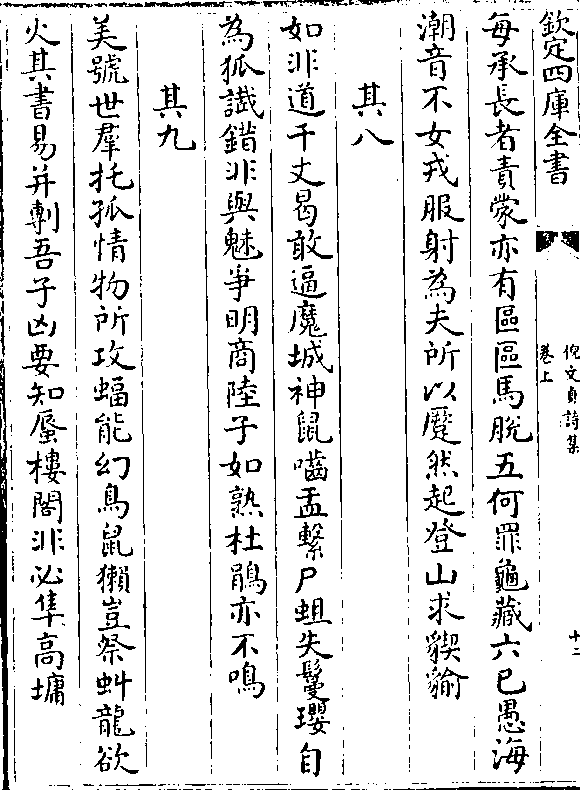 欽定四庫全書
倪文貞詩集
卷上
十二
每承長者責蒙亦有區區馬脫五何罪龜藏六已愚海
潮音不女戎服射為夫所以蹙然起登山求貏貐
其八
如非道千丈曷敢逼魔城神鼠嚙盂繫尸蛆失鬘瓔自
為狐讖錯非與魅爭明商陸子如熟杜鵑亦不鳴
其九
美號世羣托孤情物所攻蝠能幻鳥鼠獺豈祭虯龍欲
火其書易并剸吾子凶要知蜃樓閣非必隼高墉